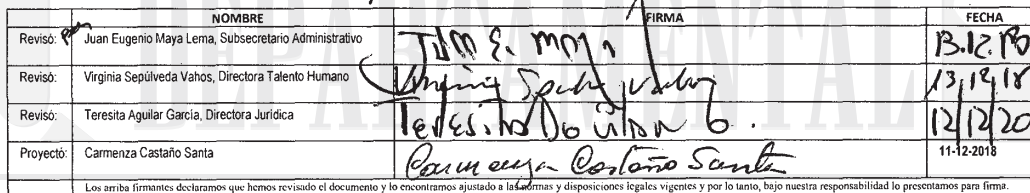 NOMBRE FIRMA FECHA
Revisó: Juan Eugenio Maya Lema, Subsecretario Administrativo Juan E. Maya 13.12.18
Revisó: Virginia Sepúlveda Vahos, Directora Talento Humano Virginia Sepulveda Vahos 13/12/18
Revisó: Teresita Aguilar García, Directora Jurídica Teresita Aguilar G. 12/12/20
Proyectó: Carmenza Castaño Santa Carmenza Castaño Santa 11-12-2018
Los arriba firmantes declaramos que hemos revisado el documento y lo encontramos ajustado a las normas y disposiciones legales vigentes y por lo tanto, bajo nuestra responsabilidad lo presentamos para firma.
DEPARTAMENTAL